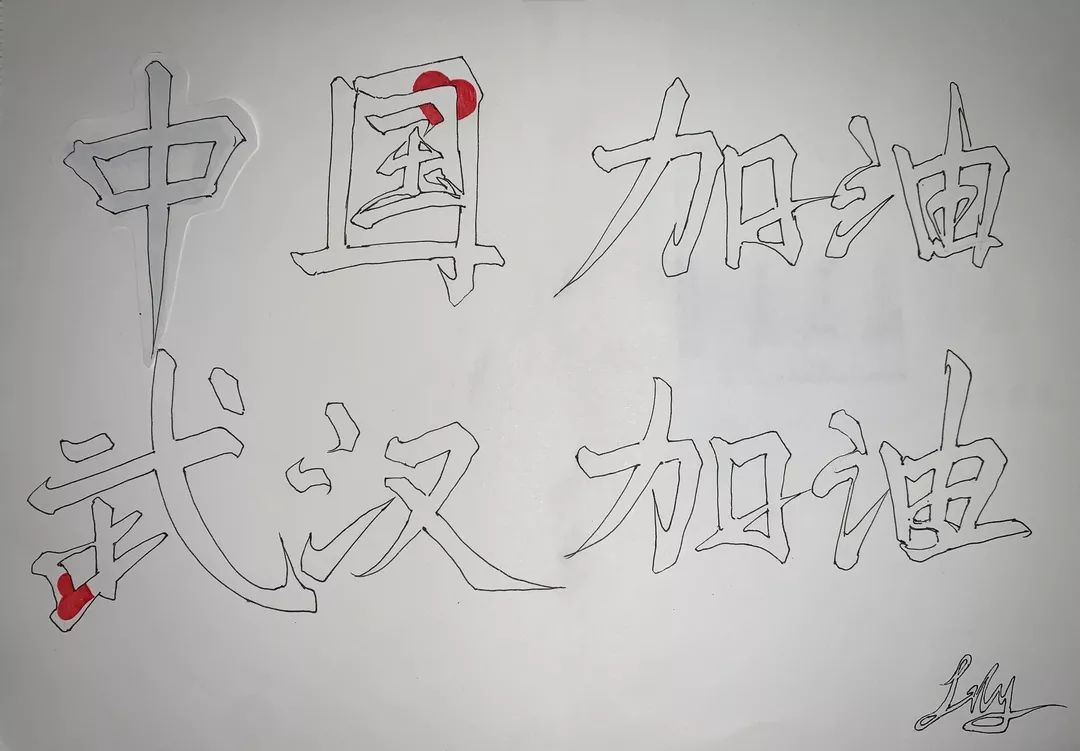 中国加油
武汉加油
Lily